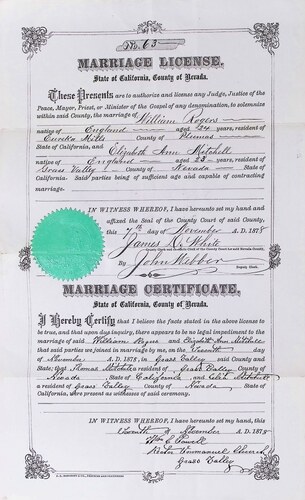 No. 63
MARRIAGE LICENSE.
State of California, County of Nevada.
These Presents are to authorize and license any Judge, Justice of the
Peace, Mayor, Priest, or Minister of the Gospel of any denomination, to solemnize
within said County, the marriage of William Rogers
native of England aged 24 years, resident of
Eureka Mills County of Plumas
State of California, and Elizabeth Ann Mitchell
native of England aged 23 years, resident of
Grass Valley County of Nevada State of
California. Said parties being of sufficient age and capable of contracting
marriage.
IN WITNESS WHEREOF, I have hereunto set my hand and
affixed the Seal of the County Court of said County,
this 7th day of November A. D. 1878
James D. White
County Clerk and Clerk of the County Court in said Nevada County.
By John Webber
Deputy Clerk.
MARRIAGE CERTIFICATE.
State of California, County of Nevada.
I Hereby Certify that I believe the facts stated in the above license
to be true, and that upon due inquiry, there appears to be no legal impediment to the
marriage of said William Rogers and Elizabeth Ann Mitchell
that said parties were joined in marriage by me, on the Seventh day
of November A. D. 1878, in Grass Valley said County and
State; that Thomas Mitchell a resident of Grass Valley County of
Nevada State of California and Mitchell
a resident of Grass Valley County of Nevada State of
California, were present as witnesses of said ceremony.
IN WITNESS WHEREOF, I have hereunto set my hand this
Seventh of November A. D. 1878
Powell
Emmanuel Church
Grass Valley